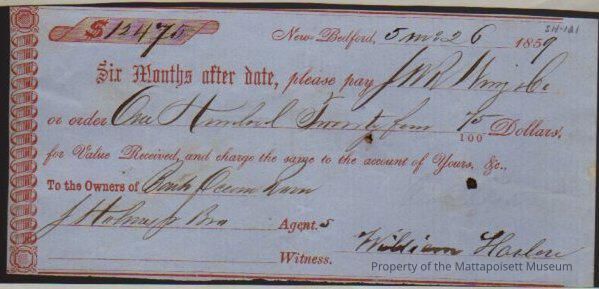 SH-121
$ 124 75 New-Bedford, 5 mo 26 1859
Six Months after date, please pay J W R Wing & Co
or order One Hundred Twenty four 75/100 Dollars.
for Value Received, and charge the same to the account of Yours, &c.,
To the Owners of Ocean
J Holmes Jr Bro Agents
William Harlow
Witness.
Property of the Mattapoisett Museum